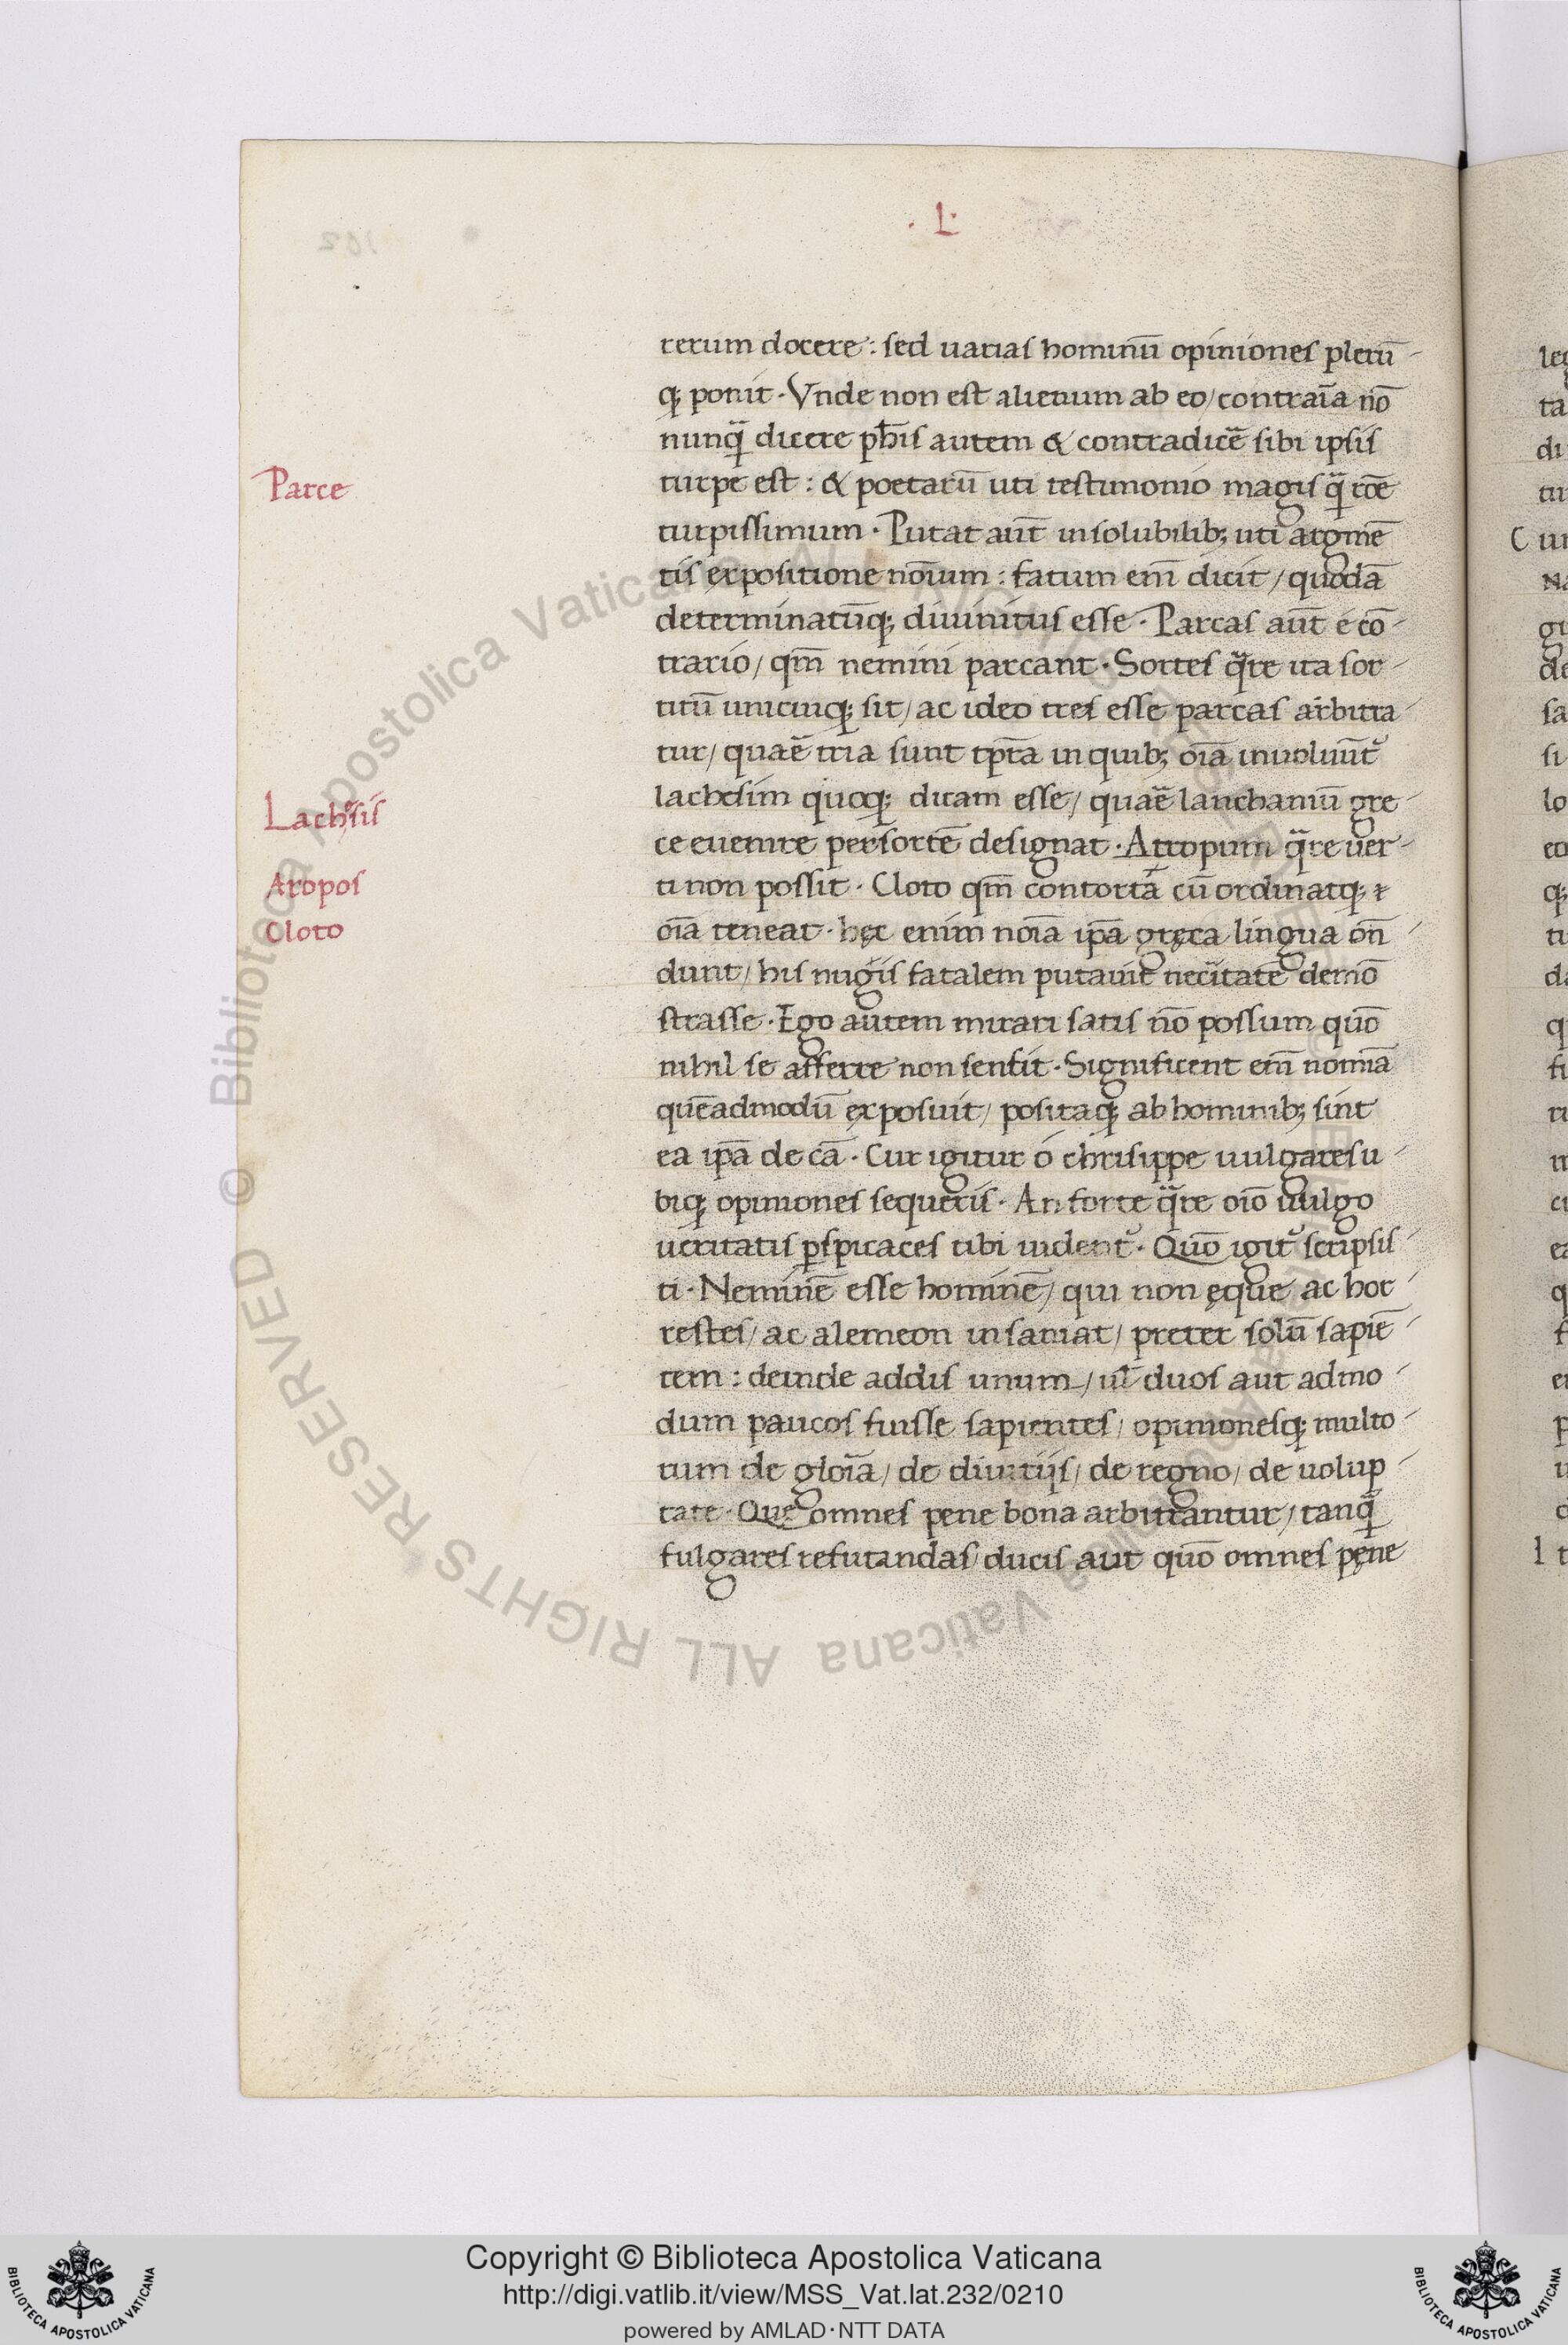 . L .
rerum docere : sed uarias hominū opiniones plerū
qꝫ ponit . Vnde non est alienum ab eo / contrar̄ia nō
nunqᷓ dicere ph̄is autem & contradicē sibi ipsis
Parce
turpe est : & poetarū uti testimonio magis qᷓ rōe
turpissimum . Putat aūt insolubilibꝫ uti argumē
tis expositione noīum : fatum eī dicit / quodā
determinatūqꝫ diuinitus esse . Parcas aūt e cō
trario / qm̄ nemini parcant . Sortes qᷓre ita sor
titū unicuiqꝫ sit / ac ideo tres esse parcas arbitra
tur / quaē tria sunt tp̄ra in quibꝫ oīa inuoluūt᷑
Lachesis
lachesim quoqꝫ dictam esse / quaē lanchaniū gre
ce euenire per sortē designat . Atropum qᷓre uer
Aropos
ti non possit . Cloto qm̄ contorta cū ordinatqꝫ
Cloto
oīa teneat . hęc enim noīa ip̄a gręca lingua on̄
dunt / his nugis fatalem putauit necītatē demō
strasse . Ego autem mirari satis nō possum quō
nihil se afferre non sentit . Significent eī nomīa
quēadmodū exposuit / positaqꝫ ab hominibꝫ sint
ea ip̄a de cā . Cur igitur o chrisippe uulgares u
biqꝫ opiniones sequeris . An forte qᷓre oīo uulgo
ueritatis ꝑspicaces tibi uident᷑ . Quō igit᷑ scripsis
ti . Neminē esse hominē / qui non ęque ac hor
restes / ac alemeon insaniat / preter solū sapiē
tem : deinde addis unum / ul̄ duos aut admo
dum paucos fuisse sapientes / opinionesqꝫ multo
rum de gloīa / de diuitijs / de regno / de uolup
tate . Que omnes pene bona arbitrantur / tanqᷓ
fulgares refutandas / ducis aut quō omnes pęne
102
© Biblioteca Apostolica Vaticana ALL RIGHTS RESERVED
Copyright © Biblioteca Apostolica Vaticana
http://digi.vatlib.it/view/MSS_Vat.lat.232/0210
powered by AMLAD·NTT DATA
BIBLIOTECA APOSTOLICA VATICANA
BIBLIOTECA APOSTOLICA VATICANA